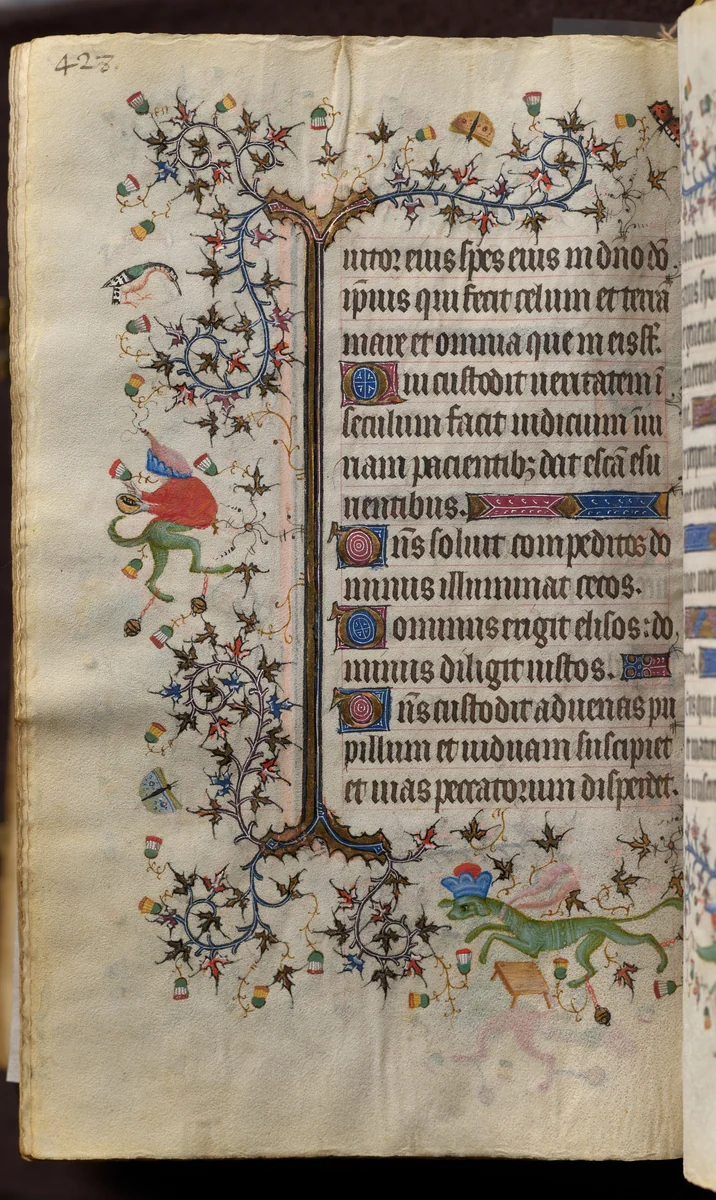 423.
iutor eius spes eius in dno dō
ipius qui fecit celum et terrā
mare et omnia que in eis st̄.
Qui custodit ueritatem ī
seculum facit iudicium iniu
riam pacientibꝫ dat escā esu
rientibus.
Dn̄s soluit compeditos do
minus illuminat cecos.
Dominus erigit elisos: do
minus diligit iustos.
Dn̄s custodit aduenas pu
pillum et uiduam suscipiet
et uias peccatorum disperdet.